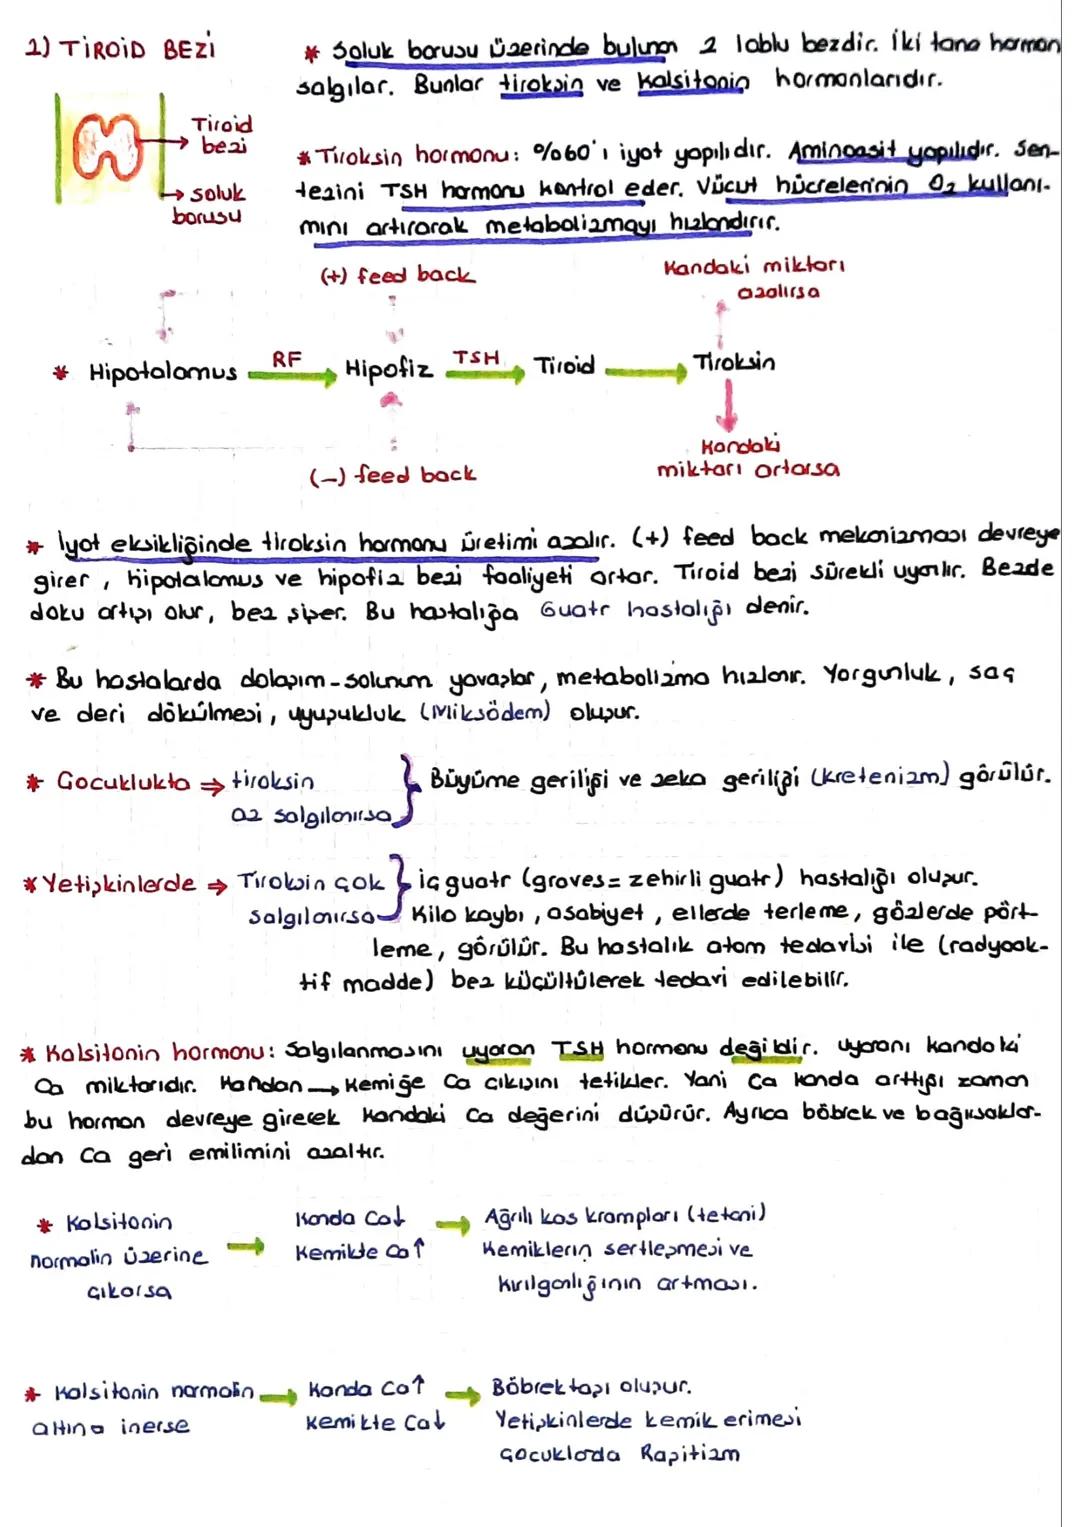 1) TİROİD BEZİ
* Soluk borusu üzerinde bulunan 2 loblu bezdir. İki tane hormon
salgılar. Bunlar tiroksin ve kalsitonin hormonlarıdır.
Tiroid
bezi
soluk
borusu
* Tiroksin hormonu: %60'ı iyot yapılıdır. Aminoasit yapılıdır. Sen-
tezini TSH hormonu kontrol eder. Vücut hücrelerinin O₂ kullanı-
mını artırarak metabolizmayı hızlandırır.
(+) feed back
Kandaki miktarı
azalırsa
* Hipotalamus RF → Hipofiz TSH → Tiroid → Tiroksin
Kandaki
miktarı artarsa
(-) feed back
* İyot eksikliğinde tiroksin hormonu üretimi azalır. (+) feed back mekanizması devreye
girer, hipotalamus ve hipofiz bezi faaliyeti artar. Tiroid bezi sürekli uyarılır. Bezde
doku artışı olur, bez şişer. Bu hastalığa Guatr hastalığı denir.
* Bu hastalarda dolaşım-solunum yavaşlar, metabolizma hızlanır. Yorgunluk, saç
ve deri dökülmesi, uyuşukluk (Miksödem) oluşur.
* Çocuklukta ⇒ tiroksin
az salgılanırsa } Büyüme geriliği ve zeka geriliği (kretenizm) görülür.
* Yetişkinlerde ⇒ Tiroksin çok
salgılanırsa } iç guatr (graves= zehirli guatr) hastalığı oluşur.
Kilo kaybı, asabiyet, ellerde terleme, gözlerde pört-
leme, görülür. Bu hastalık atom tedavisi ile (radyoak-
tif madde) bez küçültülerek tedavi edilebilir.
* Kalsitonin hormonu: Salgılanmasını uyaran TSH hormonu değildir. uyaranı kandaki
Ca miktarıdır. Kandan → Kemiğe Ca çıkışını tetikler. Yani Ca kanda arttığı zaman
bu hormon devreye girerek kandaki Ca değerini düşürür. Ayrıca böbrek ve bağırsaklar-
dan Ca geri emilimini azaltır.
* Kalsitonin
normalin üzerine
çıkarsa
→ Kanda Ca↓
Kemikte Ca↑
→ Ağrılı kas krampları (tetani)
Kemiklerin sertleşmesi ve
kırılganlığının artması.
* Kalsitonin normalin
altına inerse
→ Kanda Ca↑
Kemikte Ca↓
→ Böbrek taşı oluşur.
Yetişkinlerde kemik erimesi
çocuklarda Raşitizm